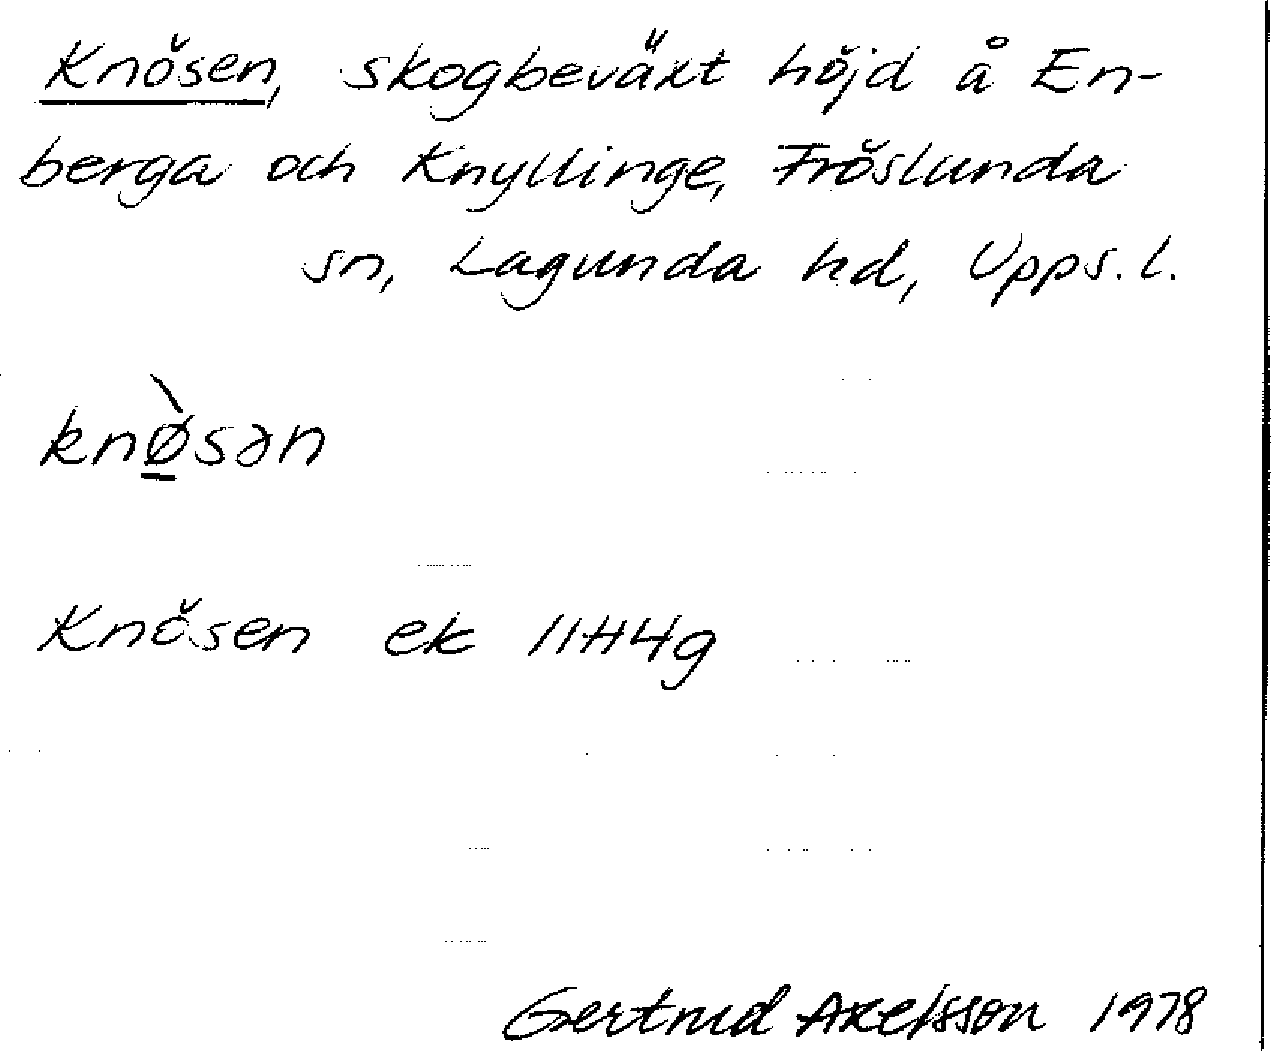 Knösen, skogbeväxt höjd å En-
berga och Knyllinge, Fröslunda
sn, Lagunda hd, Upps. l.
knø̱̀sən
Knösen ek 11H4g
Gertrud Axelsson 1978